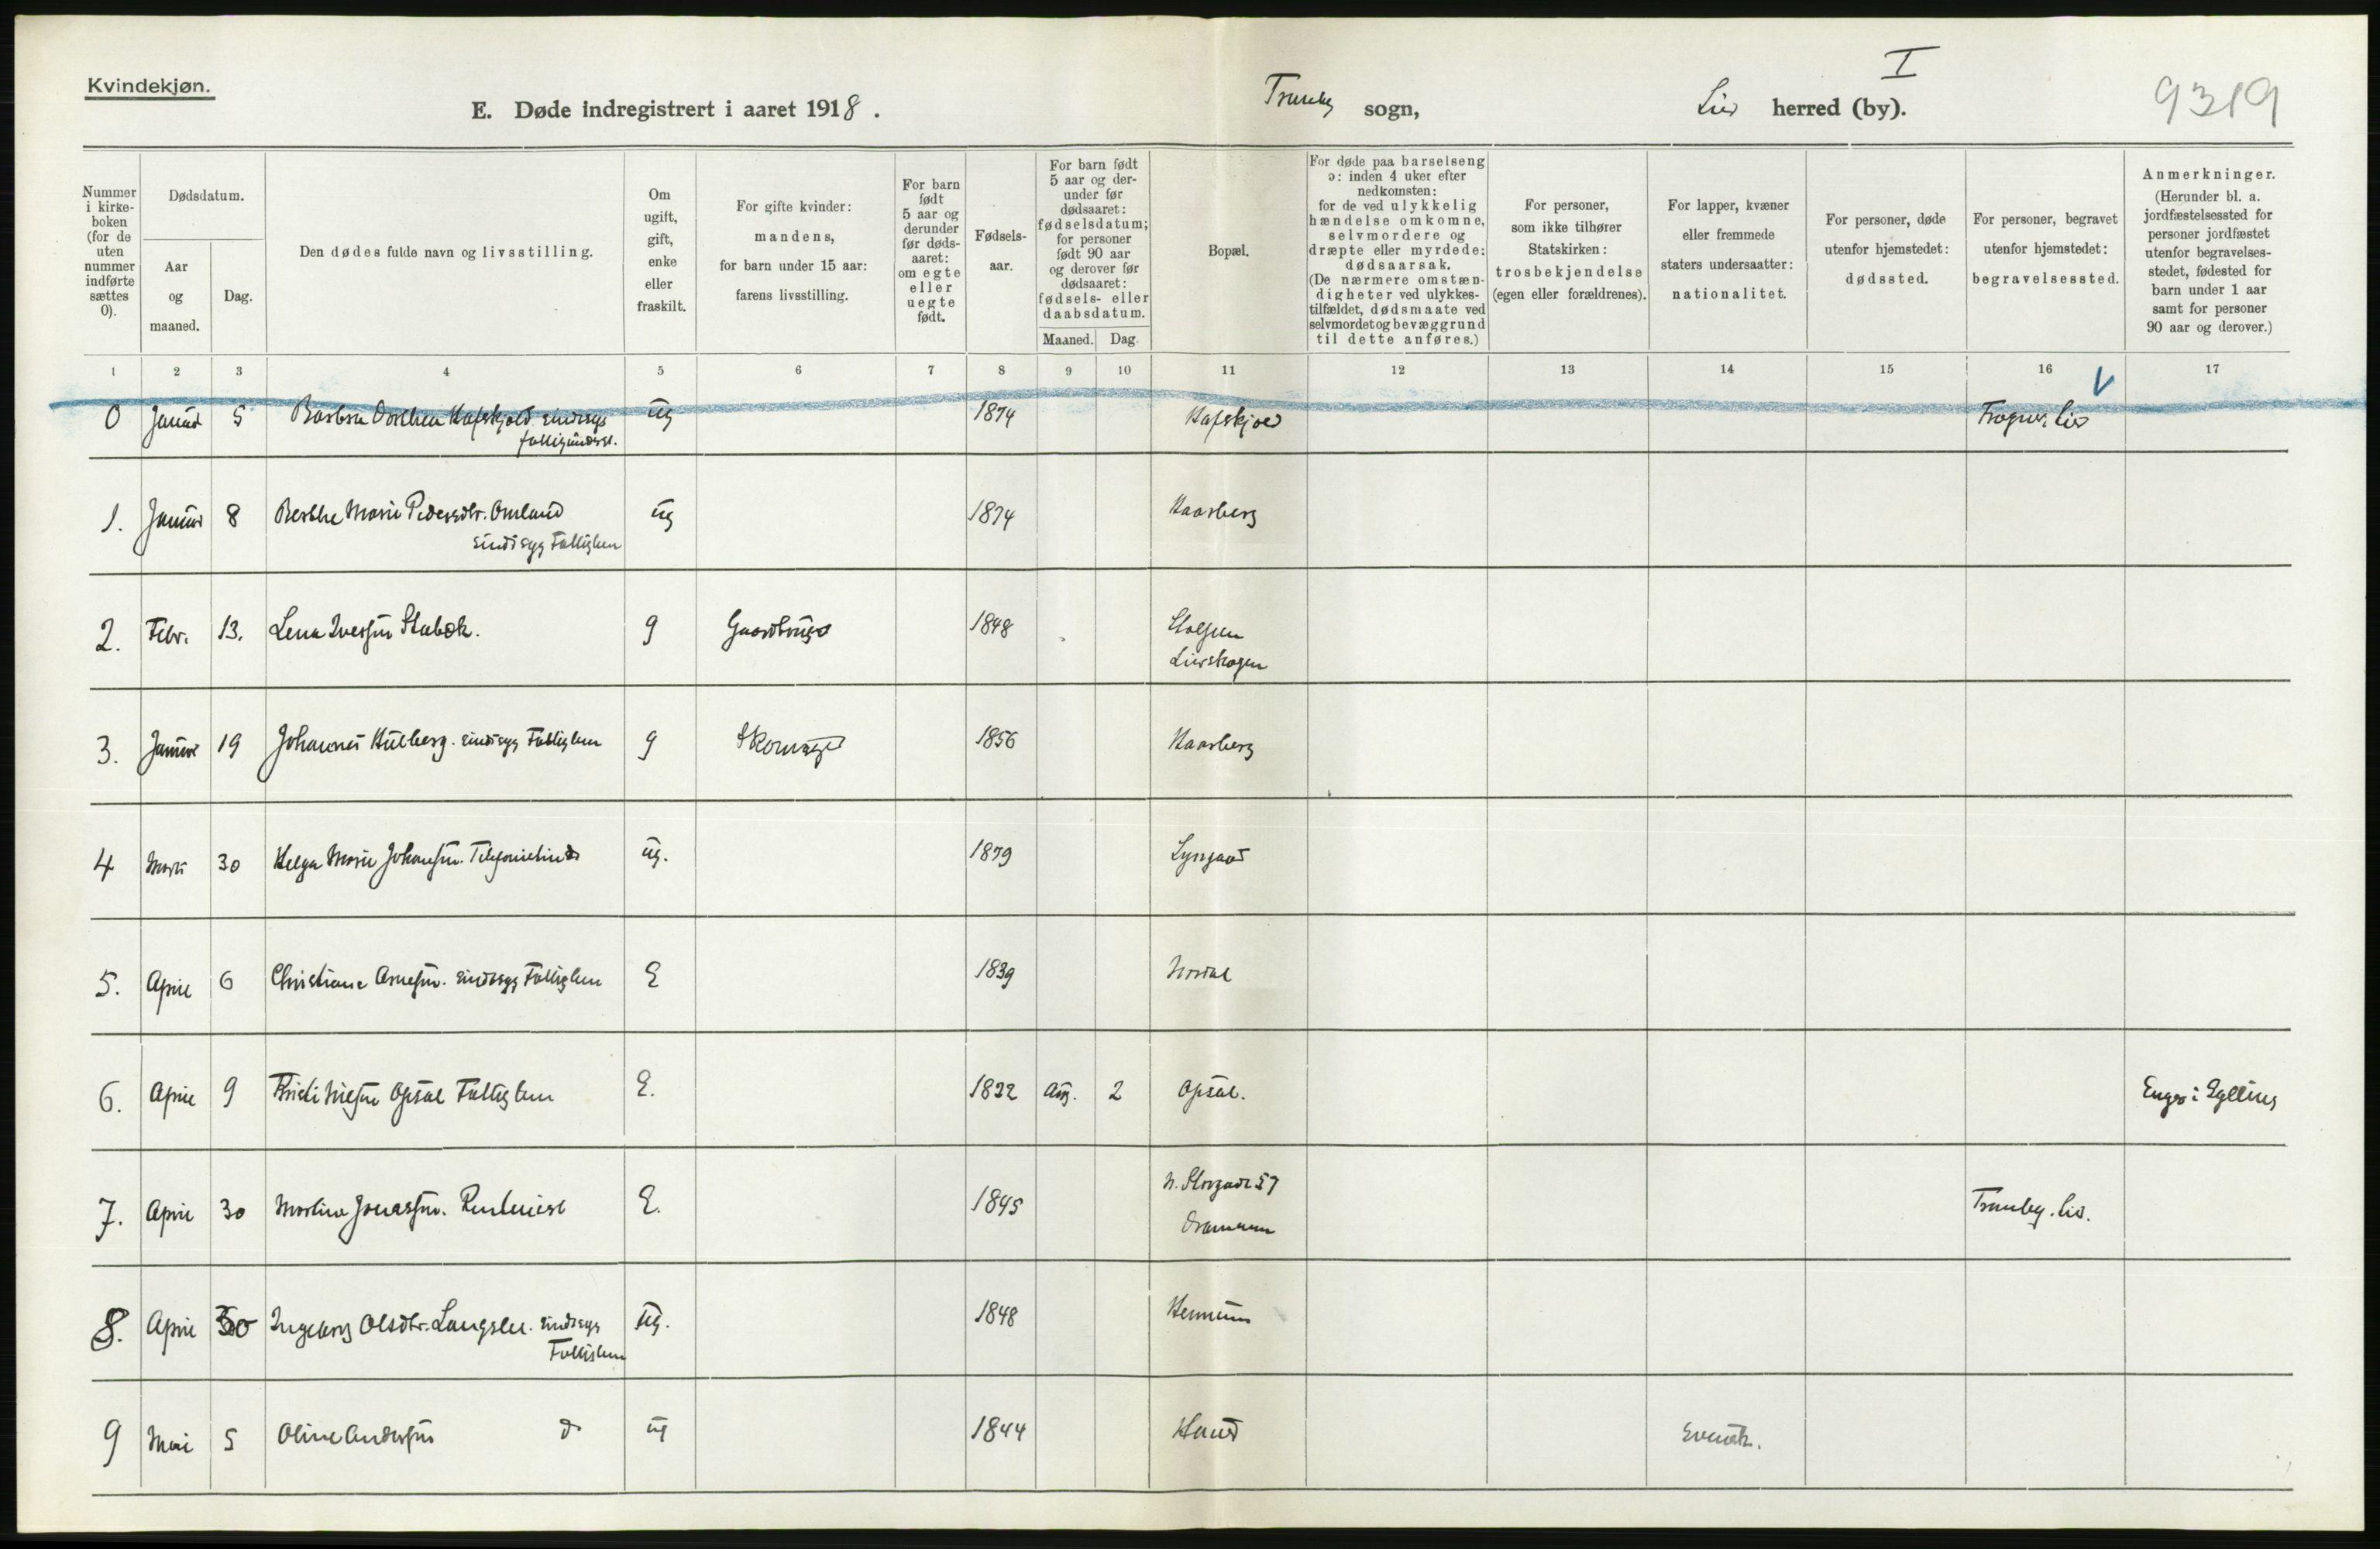 Kvindekjøn.
E. Døde indregistrert i aaret 1918.
Tranby sogn,
Lier herred (by).
I
9319
Nummer i kirkeboken (for de uten nummer indførte sættes 0).
Dødsdatum.
Aar og maaned.
Dag.
Den dødes fulde navn og livsstilling.
Om ugift, gift, enke eller fraskilt.
For gifte kvinder: mandens, for barn under 15 aar: farens livsstilling.
For barn født 5 aar og derunder før dødsaaret: om egte eller uegte født.
Fødselsaar.
For barn født 5 aar og derunder før dødsaaret: fødselsdatum; for personer født 90 aar og derover før dødsaaret: fødsels- eller daabsdatum.
Maaned.
Dag.
Bopæl.
For døde paa barselseng ɔ: inden 4 uker efter nedkomsten: for de ved ulykkelig hændelse omkomne, selvmordere og dræpte eller myrdede: dødsaarsak. (De nærmere omstændigheter ved ulykkestilfældet, dødsmaate ved selvmordet og bevæggrund til dette anføres.)
For personer, som ikke tilhører Statskirken: trosbekjendelse (egen eller forældrenes).
For lapper, kvæner eller fremmede staters undersaatter: nationalitet.
For personer, døde utenfor hjemstedet: dødssted.
For personer, begravet utenfor hjemstedet: begravelsessted.
Anmerkninger. (Herunder bl. a. jordfæstelsessted for personer jordfæstet utenfor begravelsesstedet, fødested for barn under 1 aar samt for personer 90 aar og derover.)
1 2 3 4 5 6 7 8 9 10 11 12 13 14 15 16 17
0 Januar 5 Barbra Dorthea Hafskjold sindssyg ug 1874 Hafskjold Frogner. Lier
1. Januar 8 Berthe Marie Pedersdtr. Omland ug 1874 Haarberg
sindssyg Fattiglem
2. Febr. 13. Lena Iversen Stabæk. g Gaardbruger 1848
Lierskogen
3. Januar 19 Hulberg. sindssyg Fattiglem g Skomager 1856 Haarberg
4 Marts 30 Helga Marie Johansen. Telefonistinde ug. 1879 Lyngaas
5. April 6 Christiane Arnesen. sindssyg Fattiglem E 1839
6. April 9 Nilsen Opsal Fattiglem E. 1822 Aug. 2 Opsal. Enger i Eggedal
7. April 30 Martine Jonassen. Rentenist E. 1845 N. Storgade 57 Tranby. Lier.
Drammen
8. April 30 Ingeborg Olsdtr. Langslet. sindssyg ug. 1848 Hennum
Fattiglem
9 Mai 5 Oline Andersen do ug 1844 Svensk.